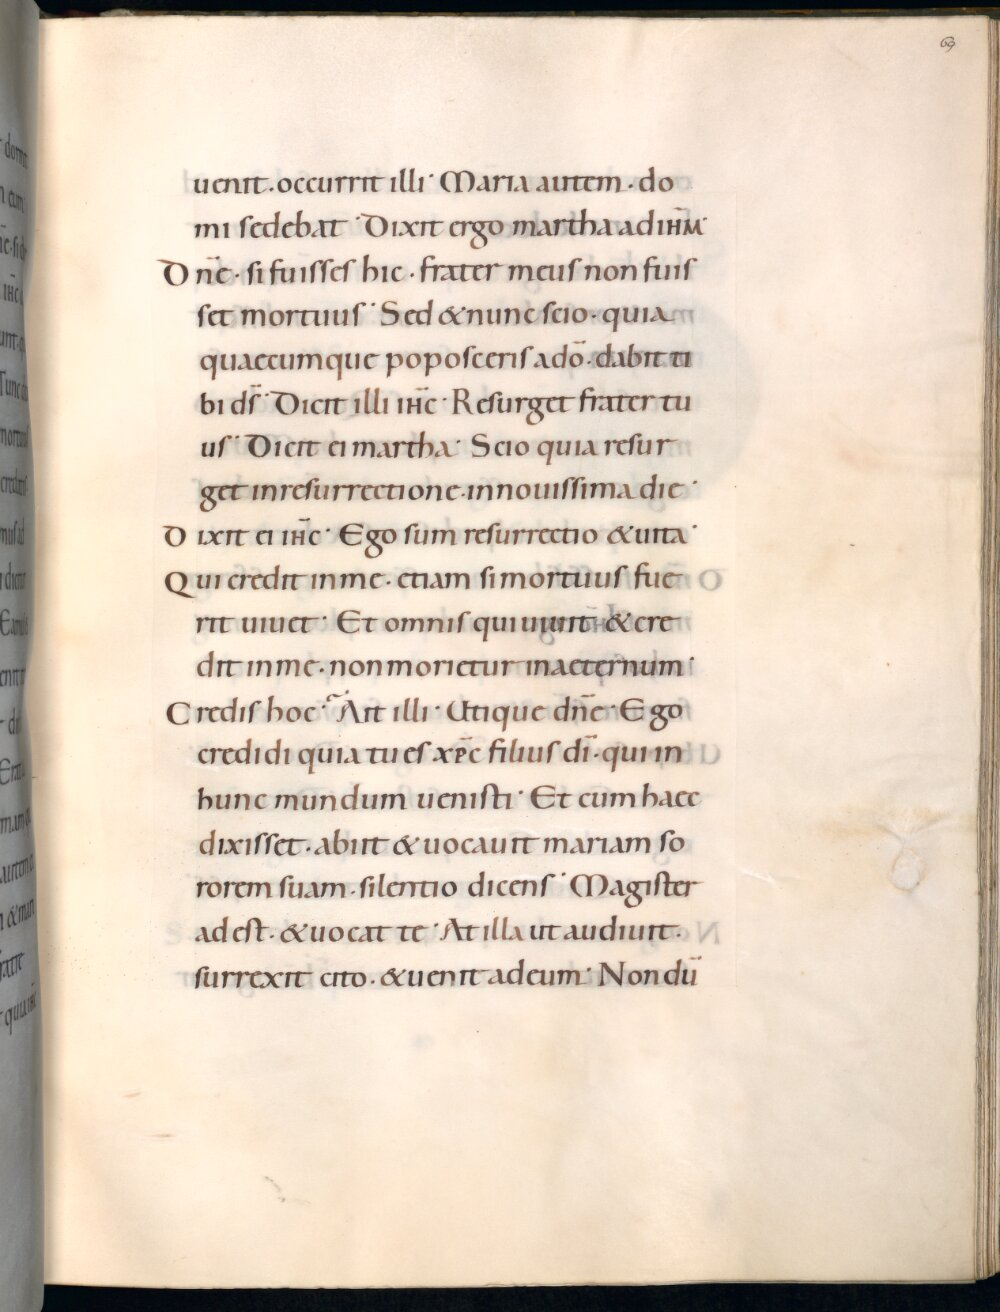 69
uenit · occurrit illi · Maria autem · do
mi sedebat · Dixit ergo martha ad ihm̄ ·
Dn̄e · si fuisses hic · frater meus non fuis
set mortuus · Sed & nunc scio · quia
quaecumque poposceris a dō · dabit ti
bi ds̄ · Dicit illi ihc̄ · Resurget frater tu
us · Dicit ei martha · Scio quia resur
get in resurrectione · in nouissima die ·
Dixit ei ihc̄ · Ego sum resurrectio & uita ·
Qui credit in me · etiam si mortuus fue
rit uiuet · Et omnis qui uiuit · & cre
dit in me · non morietur in aeternum ·
Credis hoc? Ait illi · Utique dn̄e · Ego
credidi quia tu es xp̄c filius dī · qui in
hunc mundum uenisti · Et cum haec
dixisset · abiit & uocauit mariam so
rorem suam · silentio dicens · Magister
adest · & uocat te · At illa ut audiuit ·
surrexit cito · & uenit ad eum · Nondū